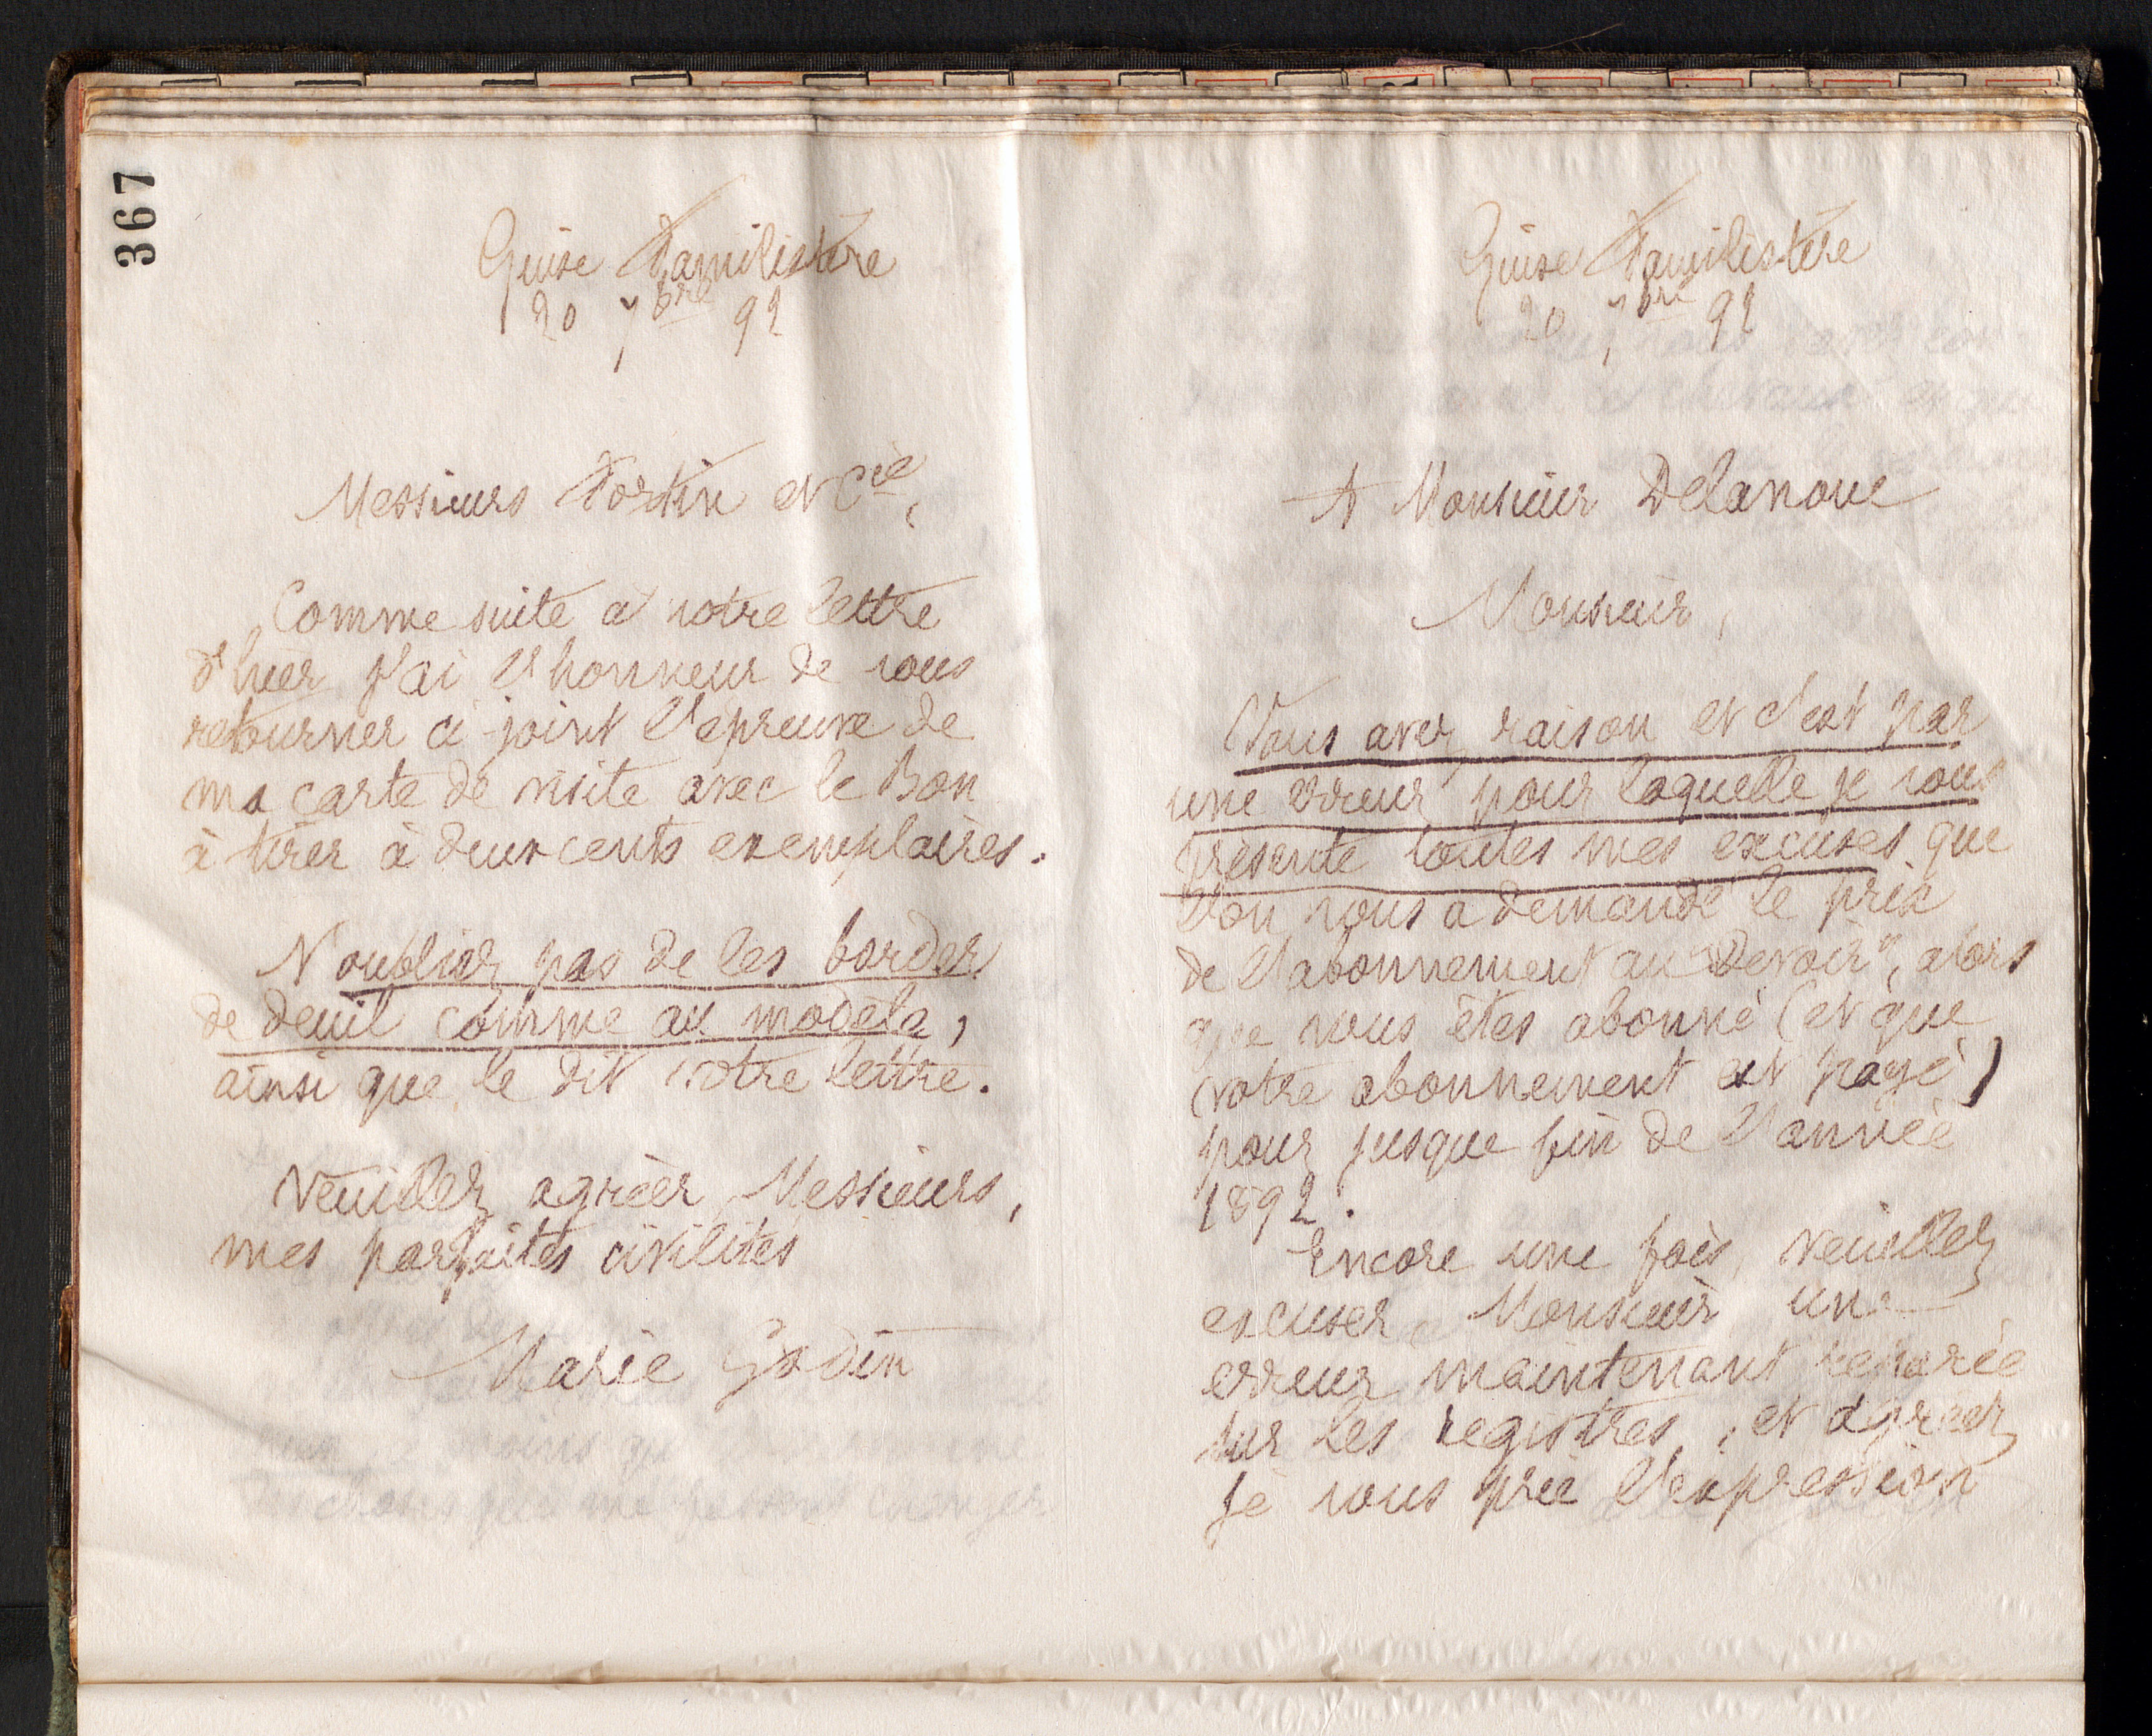 367
Guise Familistère
20 7bre 92
Messieurs Fortin et Cie,
Comme suite à notre lettre
d'hier j'ai l'honneur de vous
retourner ci-joint l'épreuve de
ma carte de visite avec le Bon
à tirer à deux cents exemplaires.
N'oubliez pas de les border
de deuil comme au modèle,
ainsi que le dit notre lettre.
Veuillez agréer, Messieurs,
mes parfaites civilités
Marie Godin
Guise Familistère
20 7bre 92
A Monsieur Delanoue
Monsieur,
Vous avez raison et c'est par
une erreur pour laquelle je vous
présente toutes mes excuses que
l'on vous a demandé le prix
de l'abonnement au "Devoir", alors
que vous êtes abonné (et que
votre abonnement est payé)
pour jusque fin de l'année
1892.
Encore une fois, veuillez
excuser, Monsieur un
erreur maintenant reparée
sur les registres, et agréez
je vous prie l'expression